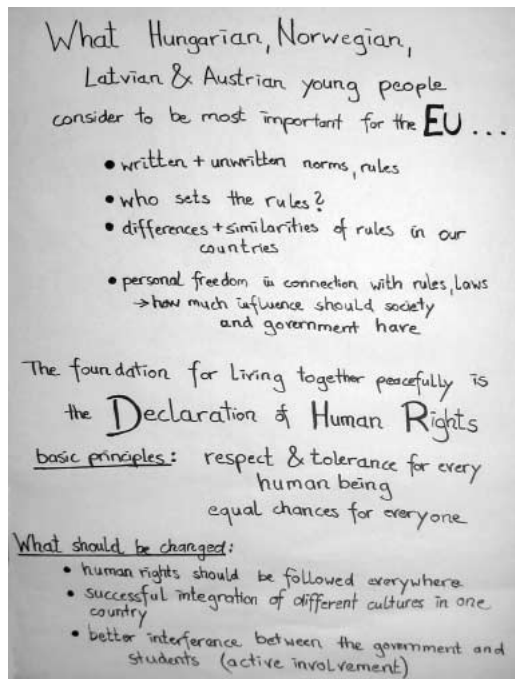 What Hungarian, Norwegian,
Latvian & Austrian young people
consider to be most important for the EU ...
• written + unwritten norms, rules
• who sets the rules?
• differences + similarities of rules in our
countries
• personal freedom in connection with rules, laws
→ how much influence should society
and government have
The foundation for living together peacefully is
the Declaration of Human Rights
basic principles: respect & tolerance for every
human being
equal chances for everyone
What should be changed:
• human rights should be followed everywhere
• successful integration of different cultures in one
country
• better interference between the government and
students (active involvement)